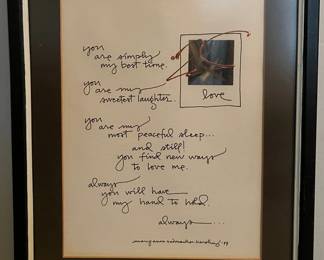 you
are simply
my best time.
you
are my
sweetest laughter.
love
you
are my
most peaceful sleep...
and still!
you find new ways
to love me.
always
you will have
my hand to hold.
always...
mary anne radmacher-hershey